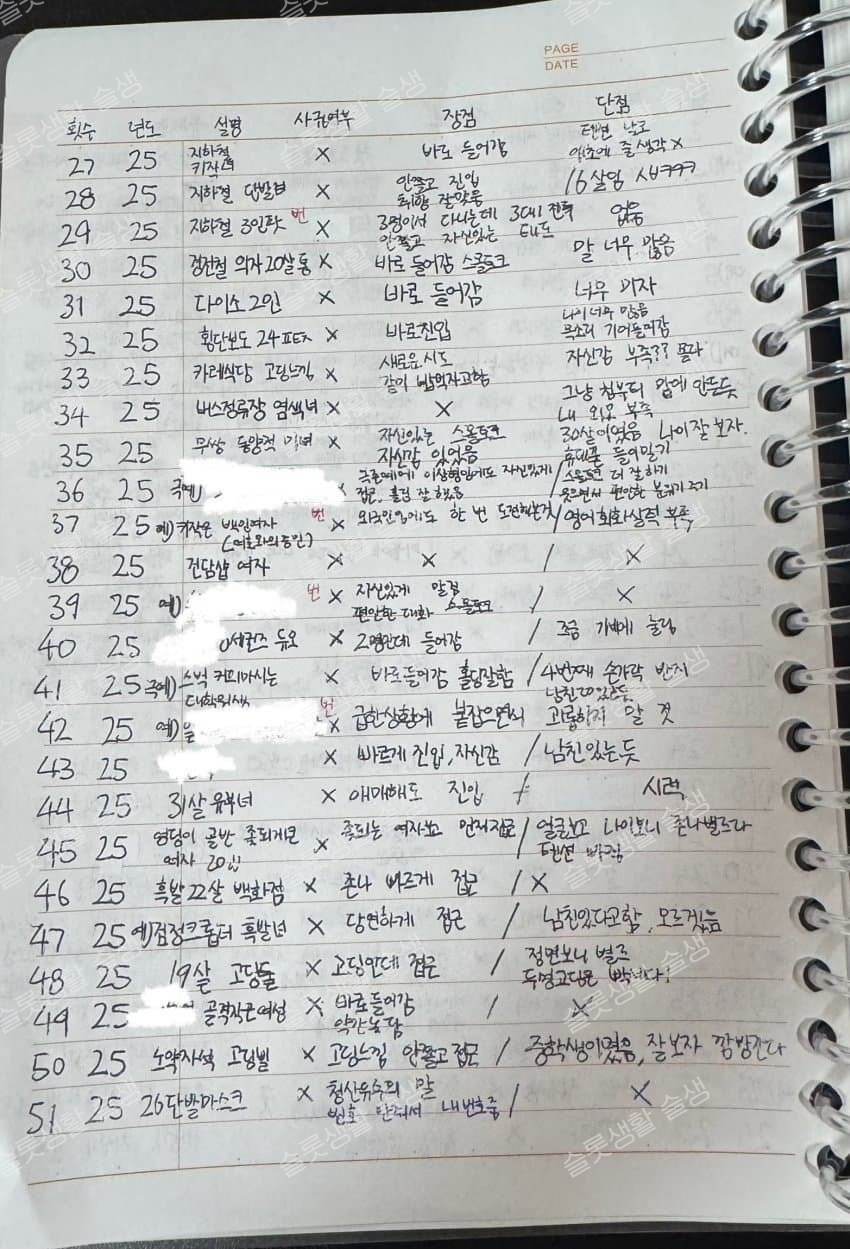 PAGE
DATE
횟수 년도 설명 사귐여부 장점 단점
27 25 지하철 키작녀 X 바로 들어감 텐션 낮고 애초에 줄 생각 X
28 25 지하철 단발녀 X 안쫄고 진입 취향 잘맞음 16살임 ㅅㅂㅋㅋㅋ
29 25 지하철 3인팟 번 X 3명이서 다니는데 3대1 전투 안쫄고 자신있는 태도 없음
30 25 경전철 의자 20살 통 X 바로 들어감 스몰토크 말 너무 많음
31 25 다이소 2인 X 바로 들어감 너무 먹자
32 25 횡단보도 24 X 바로진입 나이 너무 많음 목소리 기어들어감
33 25 카레식당 고딩느낌 X 새로운시도 같이 밥먹자고함 자신감 부족?? 몰라
34 25 버스정류장 염색녀 X X 그냥 첨부터 맘에 안든듯 내 외모 부족
35 25 무쌍 동양적 미녀 X 자신있는 스몰토크 자신감 있었음 30살이었음 나이 잘 보자.
36 25 극예) X 극존예에 이상형임에도 자신있게 접근, 홀딩 잘했음 / 휴대폰 들이밀기 스몰토크 더 잘하기 웃으면서 편안한 분위기 주기
37 25 예) 키작은 백인여자 (여촌와의 동인) 번 X 외국인임에도 한 번 도전해본것 / 영어회화실력 부족
38 25 전담샵 여자 X X / X
39 25 예) 번 X 자신있게 말검 편안한 대화 스몰토크 / X
40 25 세컨즈 듀오 X 2명인데 들어감 / 조금 기빼에 눌림
41 25 극예) 스벅 커피마시는 대학원생 X 바로들어감 홀딩잘함 / 4번째 손가락 반지 남친있는듯
42 25 예) 을 번 X 급한상황에 붙잡으면서 괴롭히지 말 것
43 25 X 빠르게 진입, 자신감 / 남친있는듯
44 25 31살 유부녀 X 애매해도 진입 / 시력
45 25 엉덩이 골반 좆되게큰 여자 20 X 좆되는 여자보고 먼저접근 / 얼굴보고 나이보니 존나별로다 텐션 빠짐
46 25 흑발 22살 백화점 X 존나 빠르게 접근 / X
47 25 예) 검정크롭티 흑발녀 X 당연하게 접근 / 남친있다고함, 모르겠음
48 25 19살 고딩들 X 고딩인데 접근 / 정면보니 별로 두명고딩은 빡세다!
49 25 골격작은여성 X 바로들어감 약간농담 / X
50 25 노약자석 고딩삘 X 고딩느낌 안쫄고접근 / 중학생이였음, 잘보자 깜빵간다
51 25 26단발마스크 X 청산유수의 말 번호 안줘서 내번호줌 / X
슬롯생활 슬생